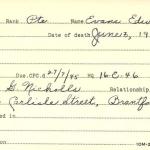 Rank Pte. Name Evans Edw
Date of death June 13, 19
Due.CPC.6 27/7/45 HQ 16-C-46
G. Nicholls Relationship
Carlisle Street, Brantfo
ed in
10M-2